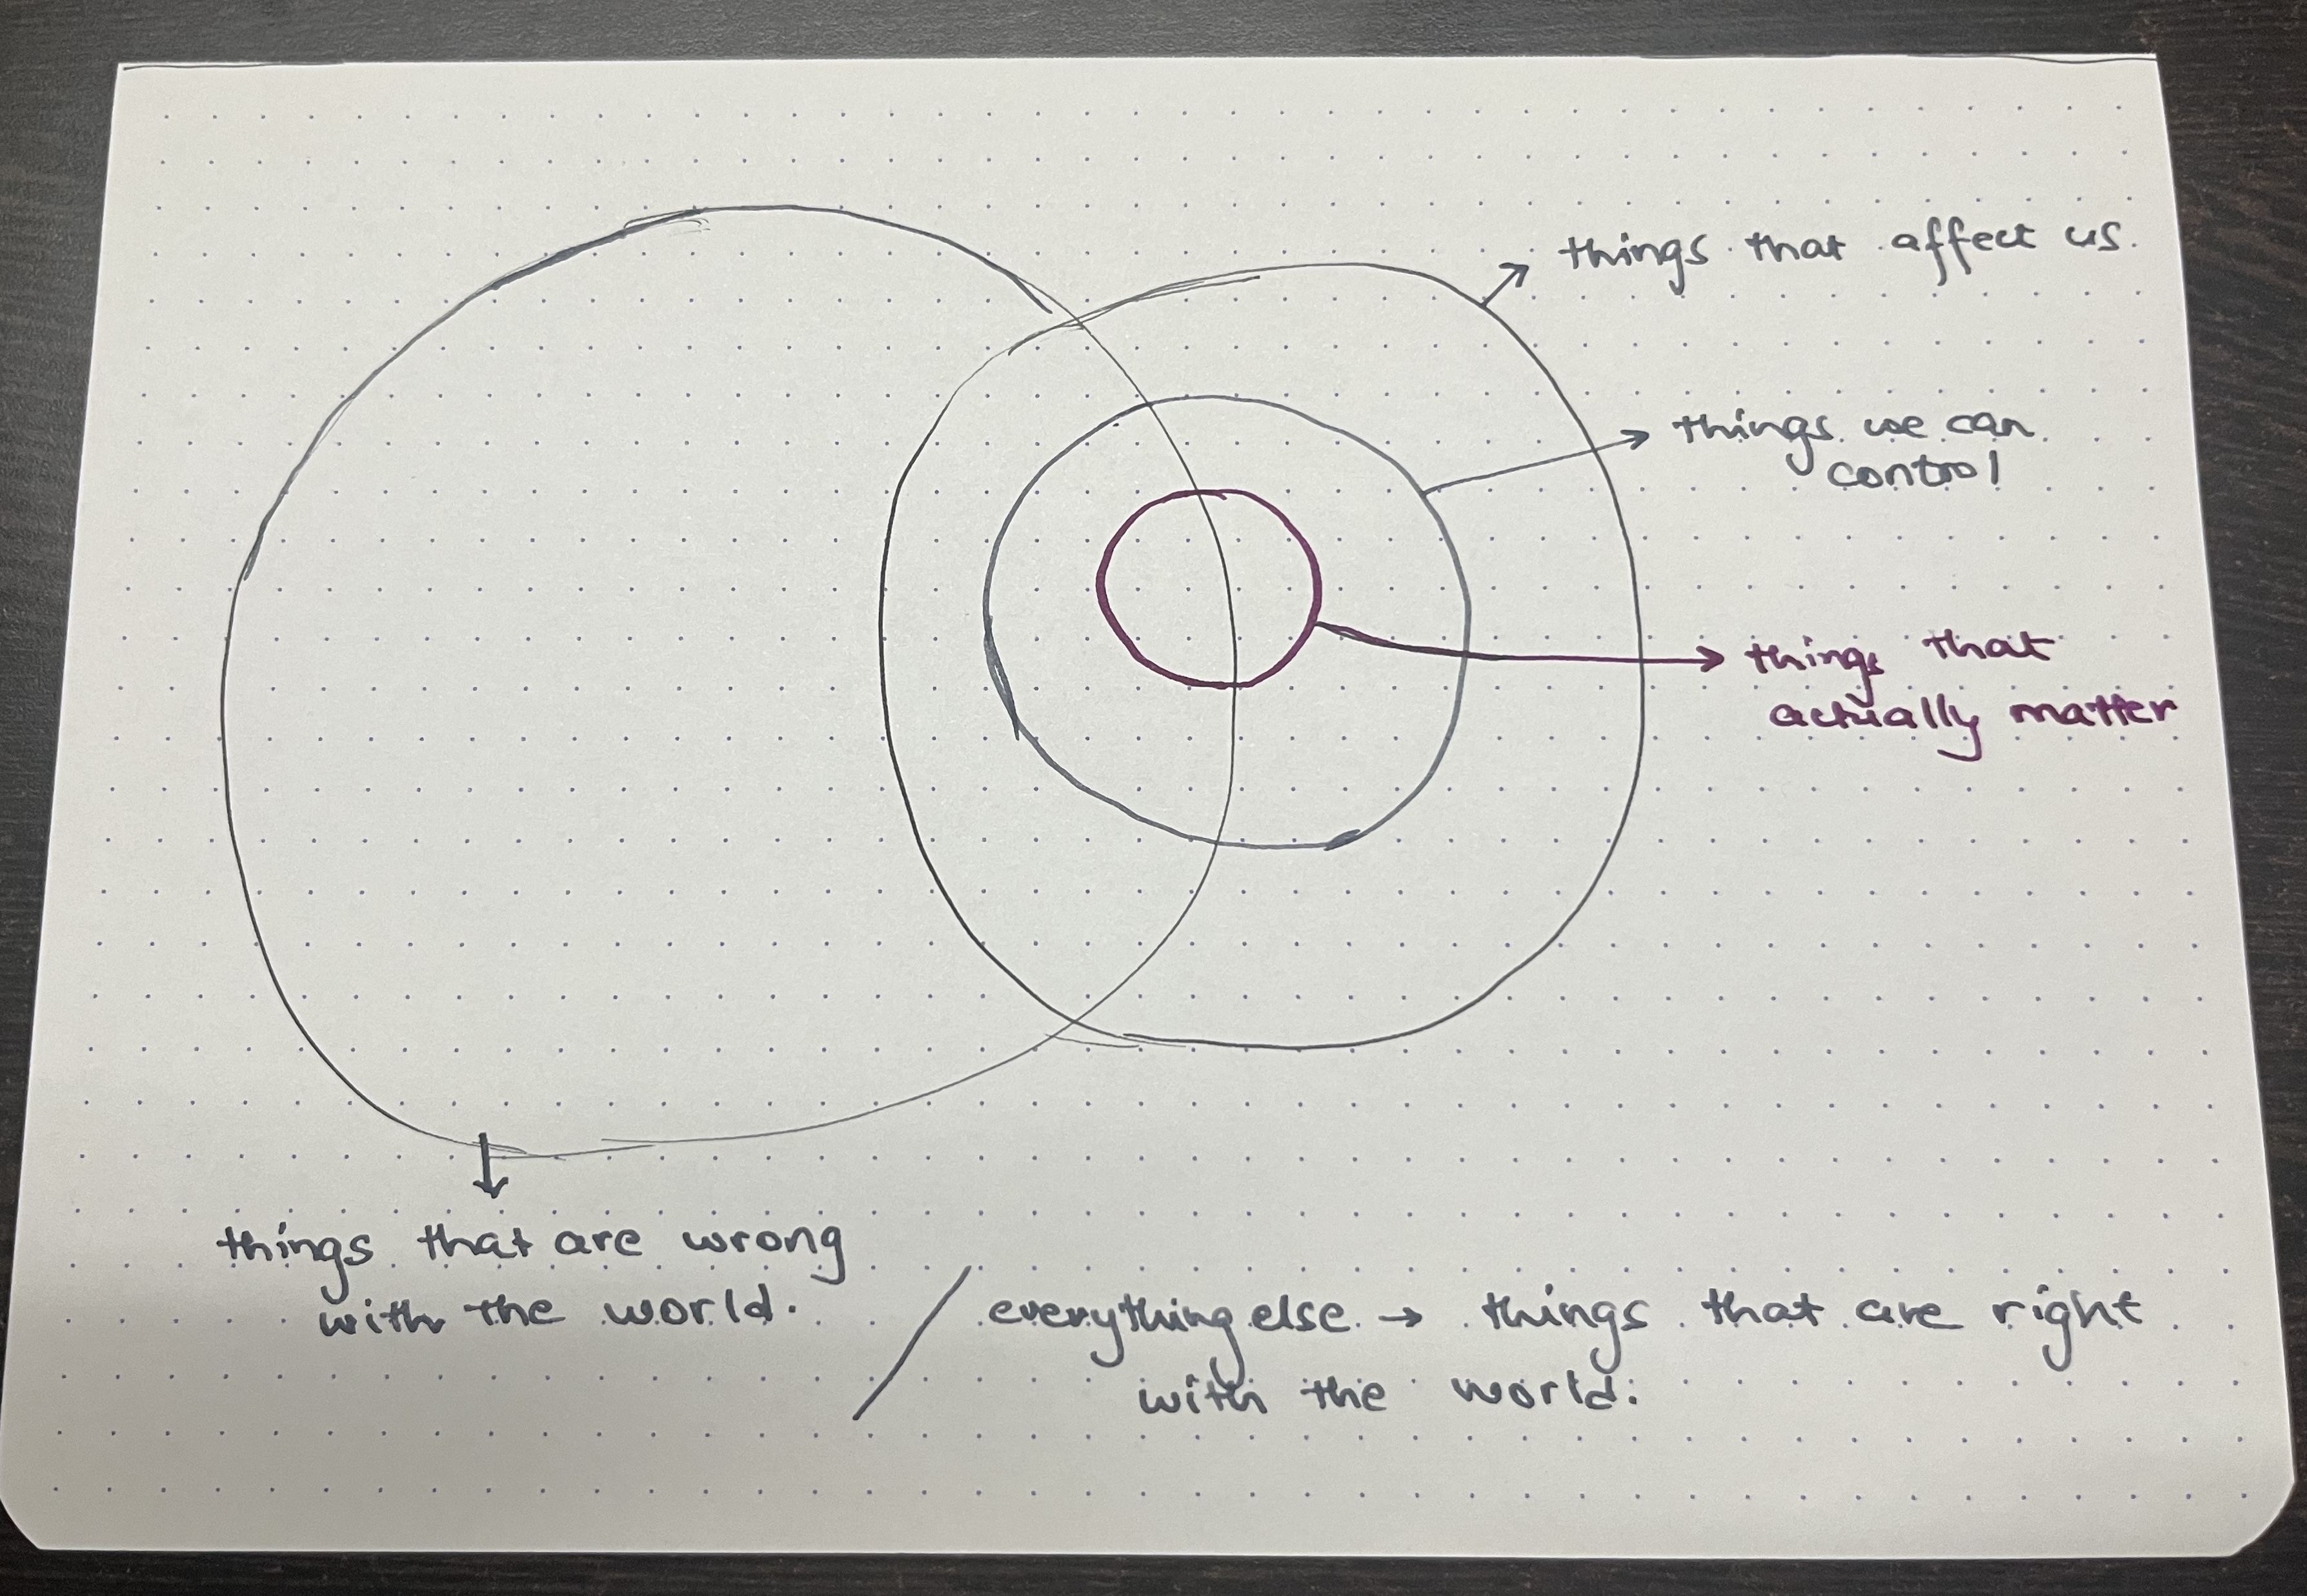 things that affect us.
things we can
control
things that
actually matter
things that are wrong
with the world.
/
everything else → things that are right
with the world.